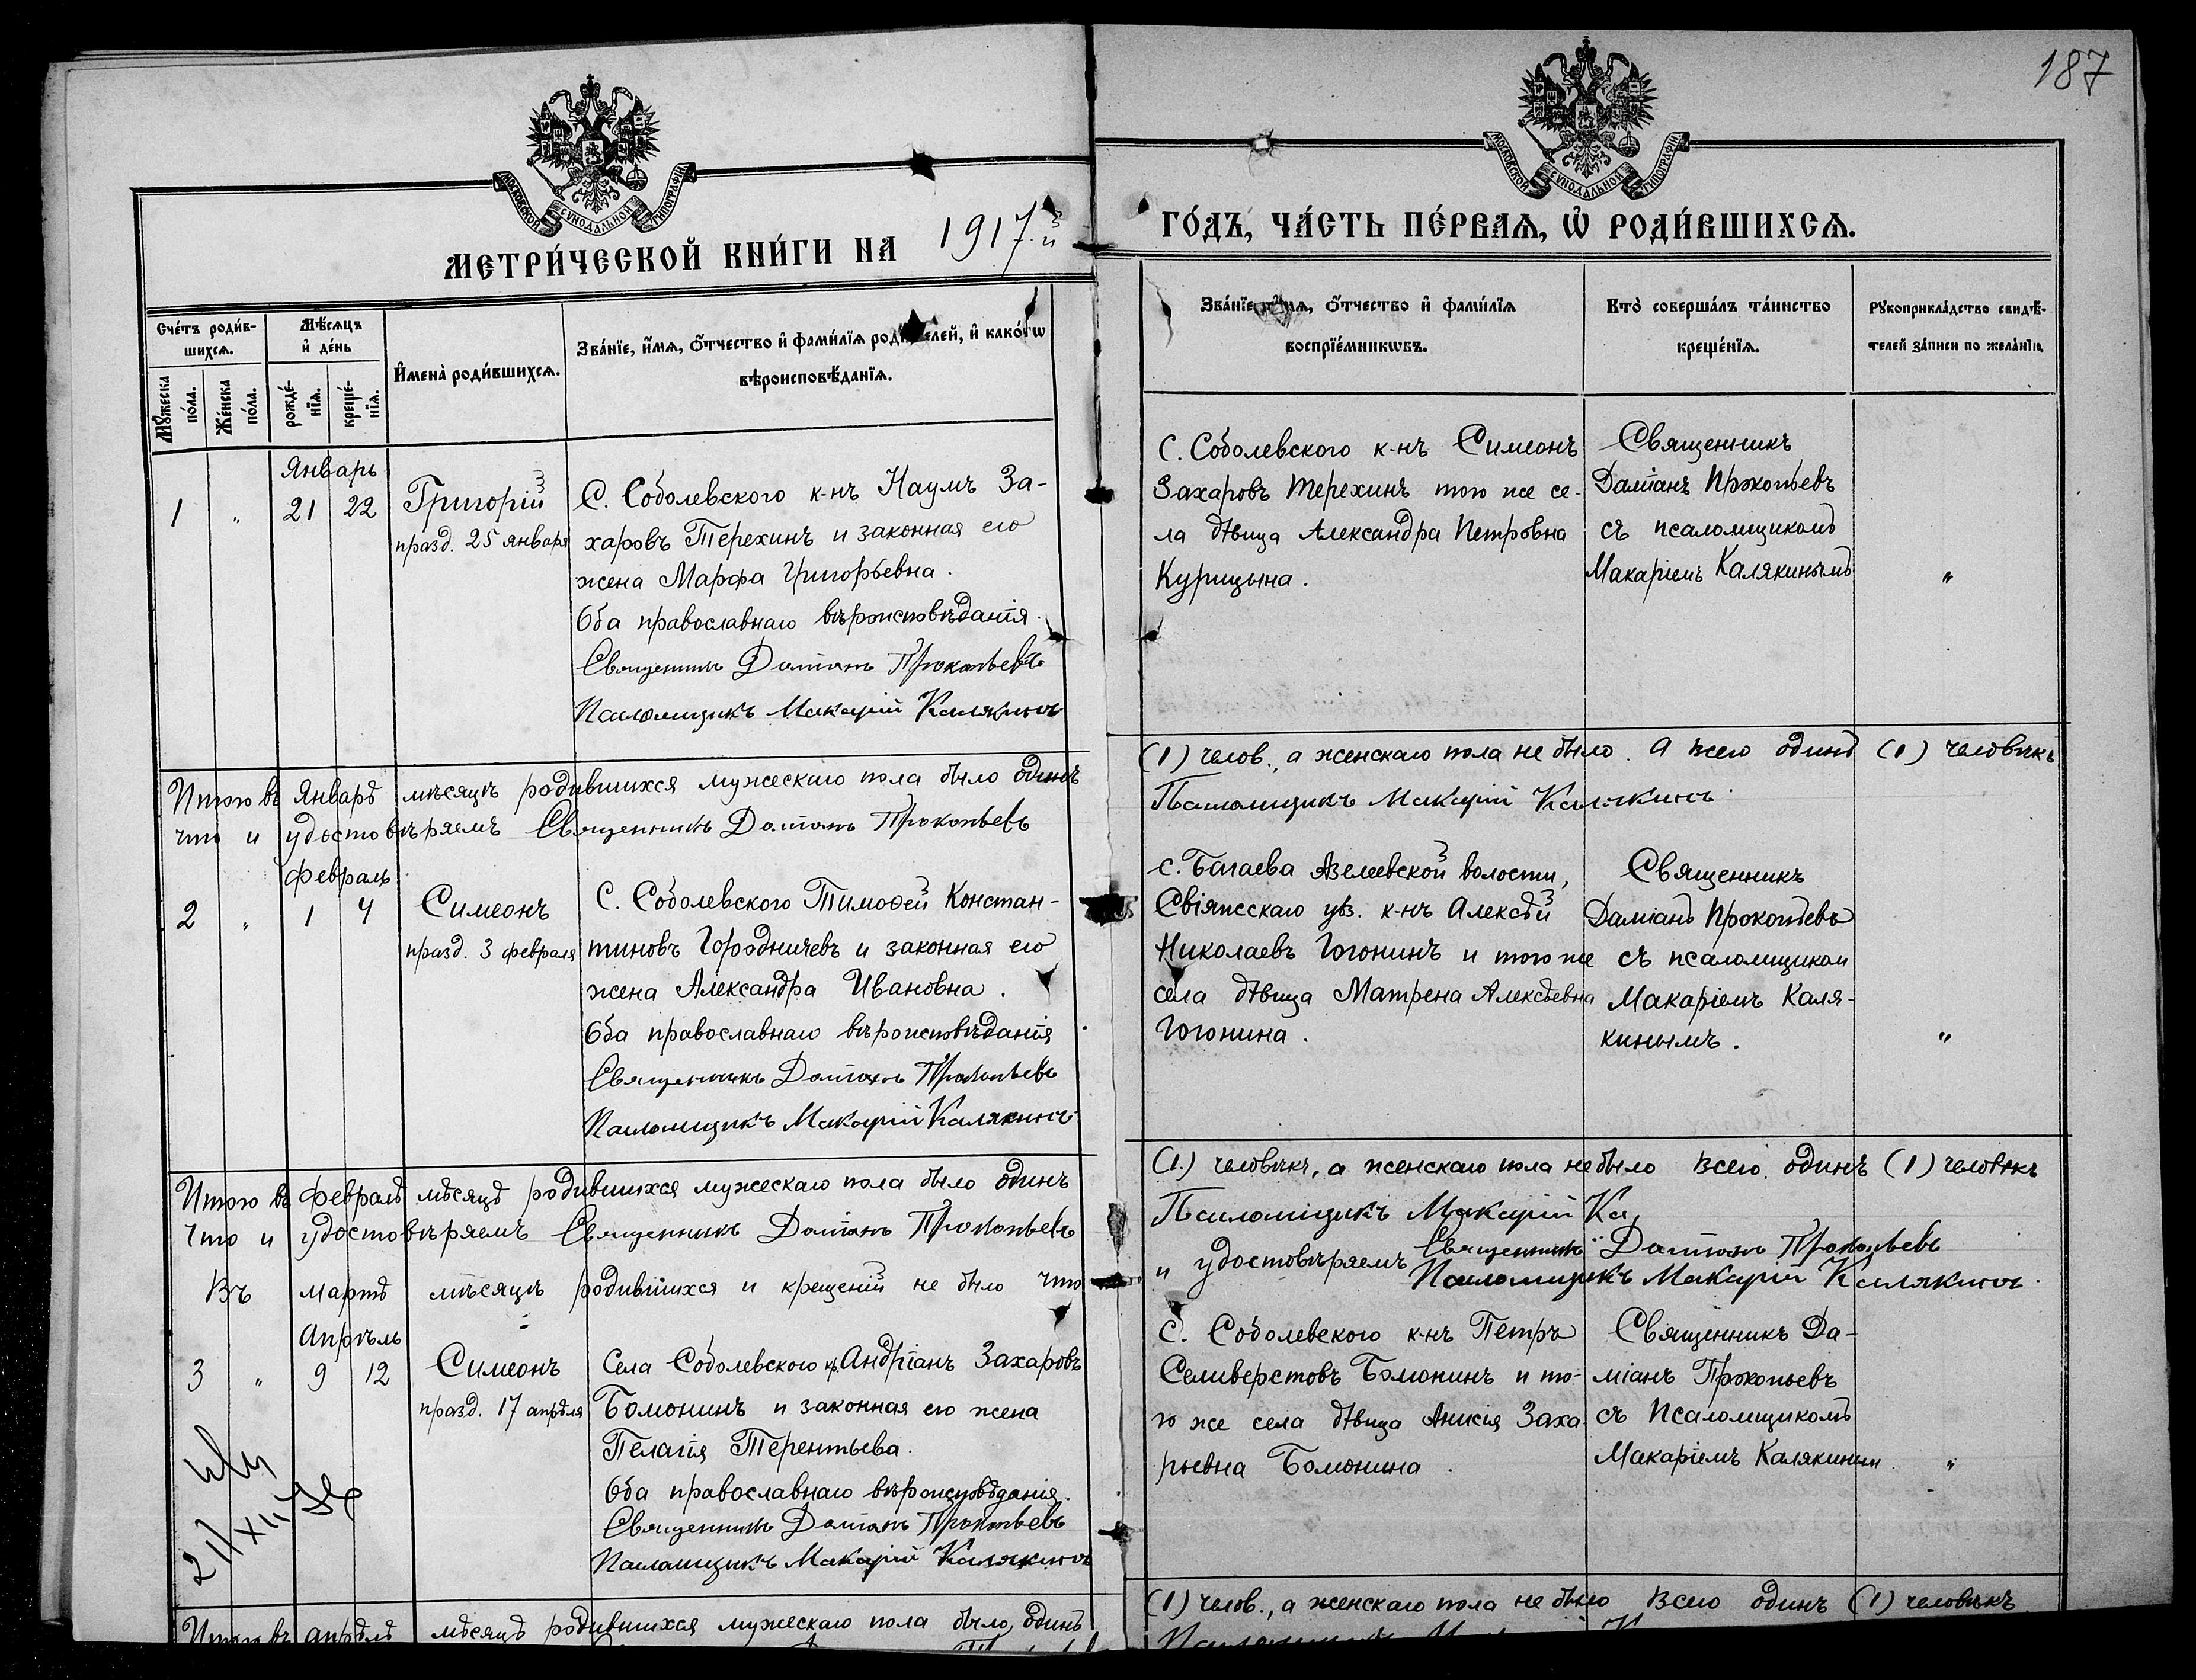 187
МОСКОВСКОЙ СѴНОДАЛЬНОЙ ТИПОГРАФІИ
МОСКОВСКОЙ СѴНОДАЛЬНОЙ ТИПОГРАФІИ
МЕТРИ́ЧЕСКОЙ КНИ́ГИ НА 1917.й
ГО́ДЪ, ЧА́СТЬ ПЕ́РВАѦ, Ѡ҆ РОДИ́ВШИХСѦ.
Сче́тъ роди́в-
шихсѧ.
Мꙋ́жеска по́ла.
Же́нска по́ла.
Мѣ́сѧцъ
и҆ де́нь
рожде́-
нїѧ.
креще́-
нїѧ.
И҆мена̀ роди́вшихсѧ.
Зва́нїе, и҆́мѧ, ѻ҆́тчество и҆ фами́лїѧ роди́телей, и҆ како́гѡ
вѣроисповѣ́данїѧ.
Зва́нїе, и҆́мѧ, ѻ҆́тчество и҆ фами́лїѧ
воспрїе́мникѡвъ.
Кто̀ соверша́лъ та́инство
креще́нїѧ.
Рꙋкоприкла́дство свидѣ́-
телей за́писи по жела́нїю
Январь
1 " 21 22
Григорій
празд. 25 января
С. Соболевского к-нъ Наумъ За-
харовъ Терехинъ и законная его
жена Марѳа Григорьевна.
Оба православнаго вѣроисповѣданія.
Священникъ Даміанъ Прокопьевъ
Псаломщикъ Макарій Калякинъ
С. Соболевского к-нъ Симеонъ
Захаровъ Терехинъ того же се-
ла дѣвица Александра Петровна
Курицына.
Священникъ
Даміанъ Прокопьевъ
съ псаломщикомъ
Макаріемъ Калякинымъ
"
Итого въ Январѣ мѣсяцѣ родившихся мужескаго пола было одинъ
(1) челов., а женскаго пола не было. А всего одинъ (1) человѣкъ
что и удостовѣряемъ Священникъ Даміанъ Прокопьевъ
Псаломщикъ Макарій Калякинъ.
Февраль
2 " 1 4
Симеонъ
празд. 3 февраля
С. Соболевского Тимоѳей Констан-
тиновъ Городничевъ и законная его
жена Александра Ивановна.
Оба православнаго вѣроисповѣданія
Священникъ Даміанъ Прокопьевъ
Псаломщикъ Макарій Калякинъ
с. Багаева Азелеевской волости,
Свіяжскаго уѣз. к-нъ Алексѣй
Николаевъ Гогонинъ и того же
села дѣвица Матрена Алексѣевна
Гогонина.
Священникъ
Даміанъ Прокопьевъ
съ псаломщиком
Макаріемъ Каля-
кинымъ.
"
Итого въ Февралѣ мѣсяцѣ родившихся мужескаго пола было одинъ
(1.) человѣкъ, а женскаго пола не было всего одинъ (1) человѣкъ
Что и удостовѣряемъ Священникъ Даміанъ Прокопьевъ
Псаломщикъ Макарій Ка
Въ мартѣ мѣсяцѣ родившихся и крещеній не было что
и удостовѣряемъ Священникъ Даміанъ Прокопьевъ
Псаломщикъ Макарій Калякинъ.
Апрѣль
3 " 9 12
Симеонъ
празд. 17 апрѣля
Села Соболевского кр. Андріанъ Захаровъ
Бомонинъ и законная его жена
Пелагія Терентьева.
Оба православнаго вѣроисповѣданія.
Священникъ Даміанъ Прокопьевъ
Псаломщикъ Макарій Калякинъ
С. Соболевского к-нъ Петръ
Селиверстовъ Бомонинъ и то-
го же села дѣвица Анисія Заха
рьевна Бомонина.
Священникъ Да-
міанъ Прокопьевъ
съ Псаломщикомъ
Макаріемъ Калякиным
"
Итого въ апрѣлѣ мѣсяцѣ родившихся мужескаго пола было одинъ
(1) челов., а женскаго пола не было всего одинъ (1) человѣкъ